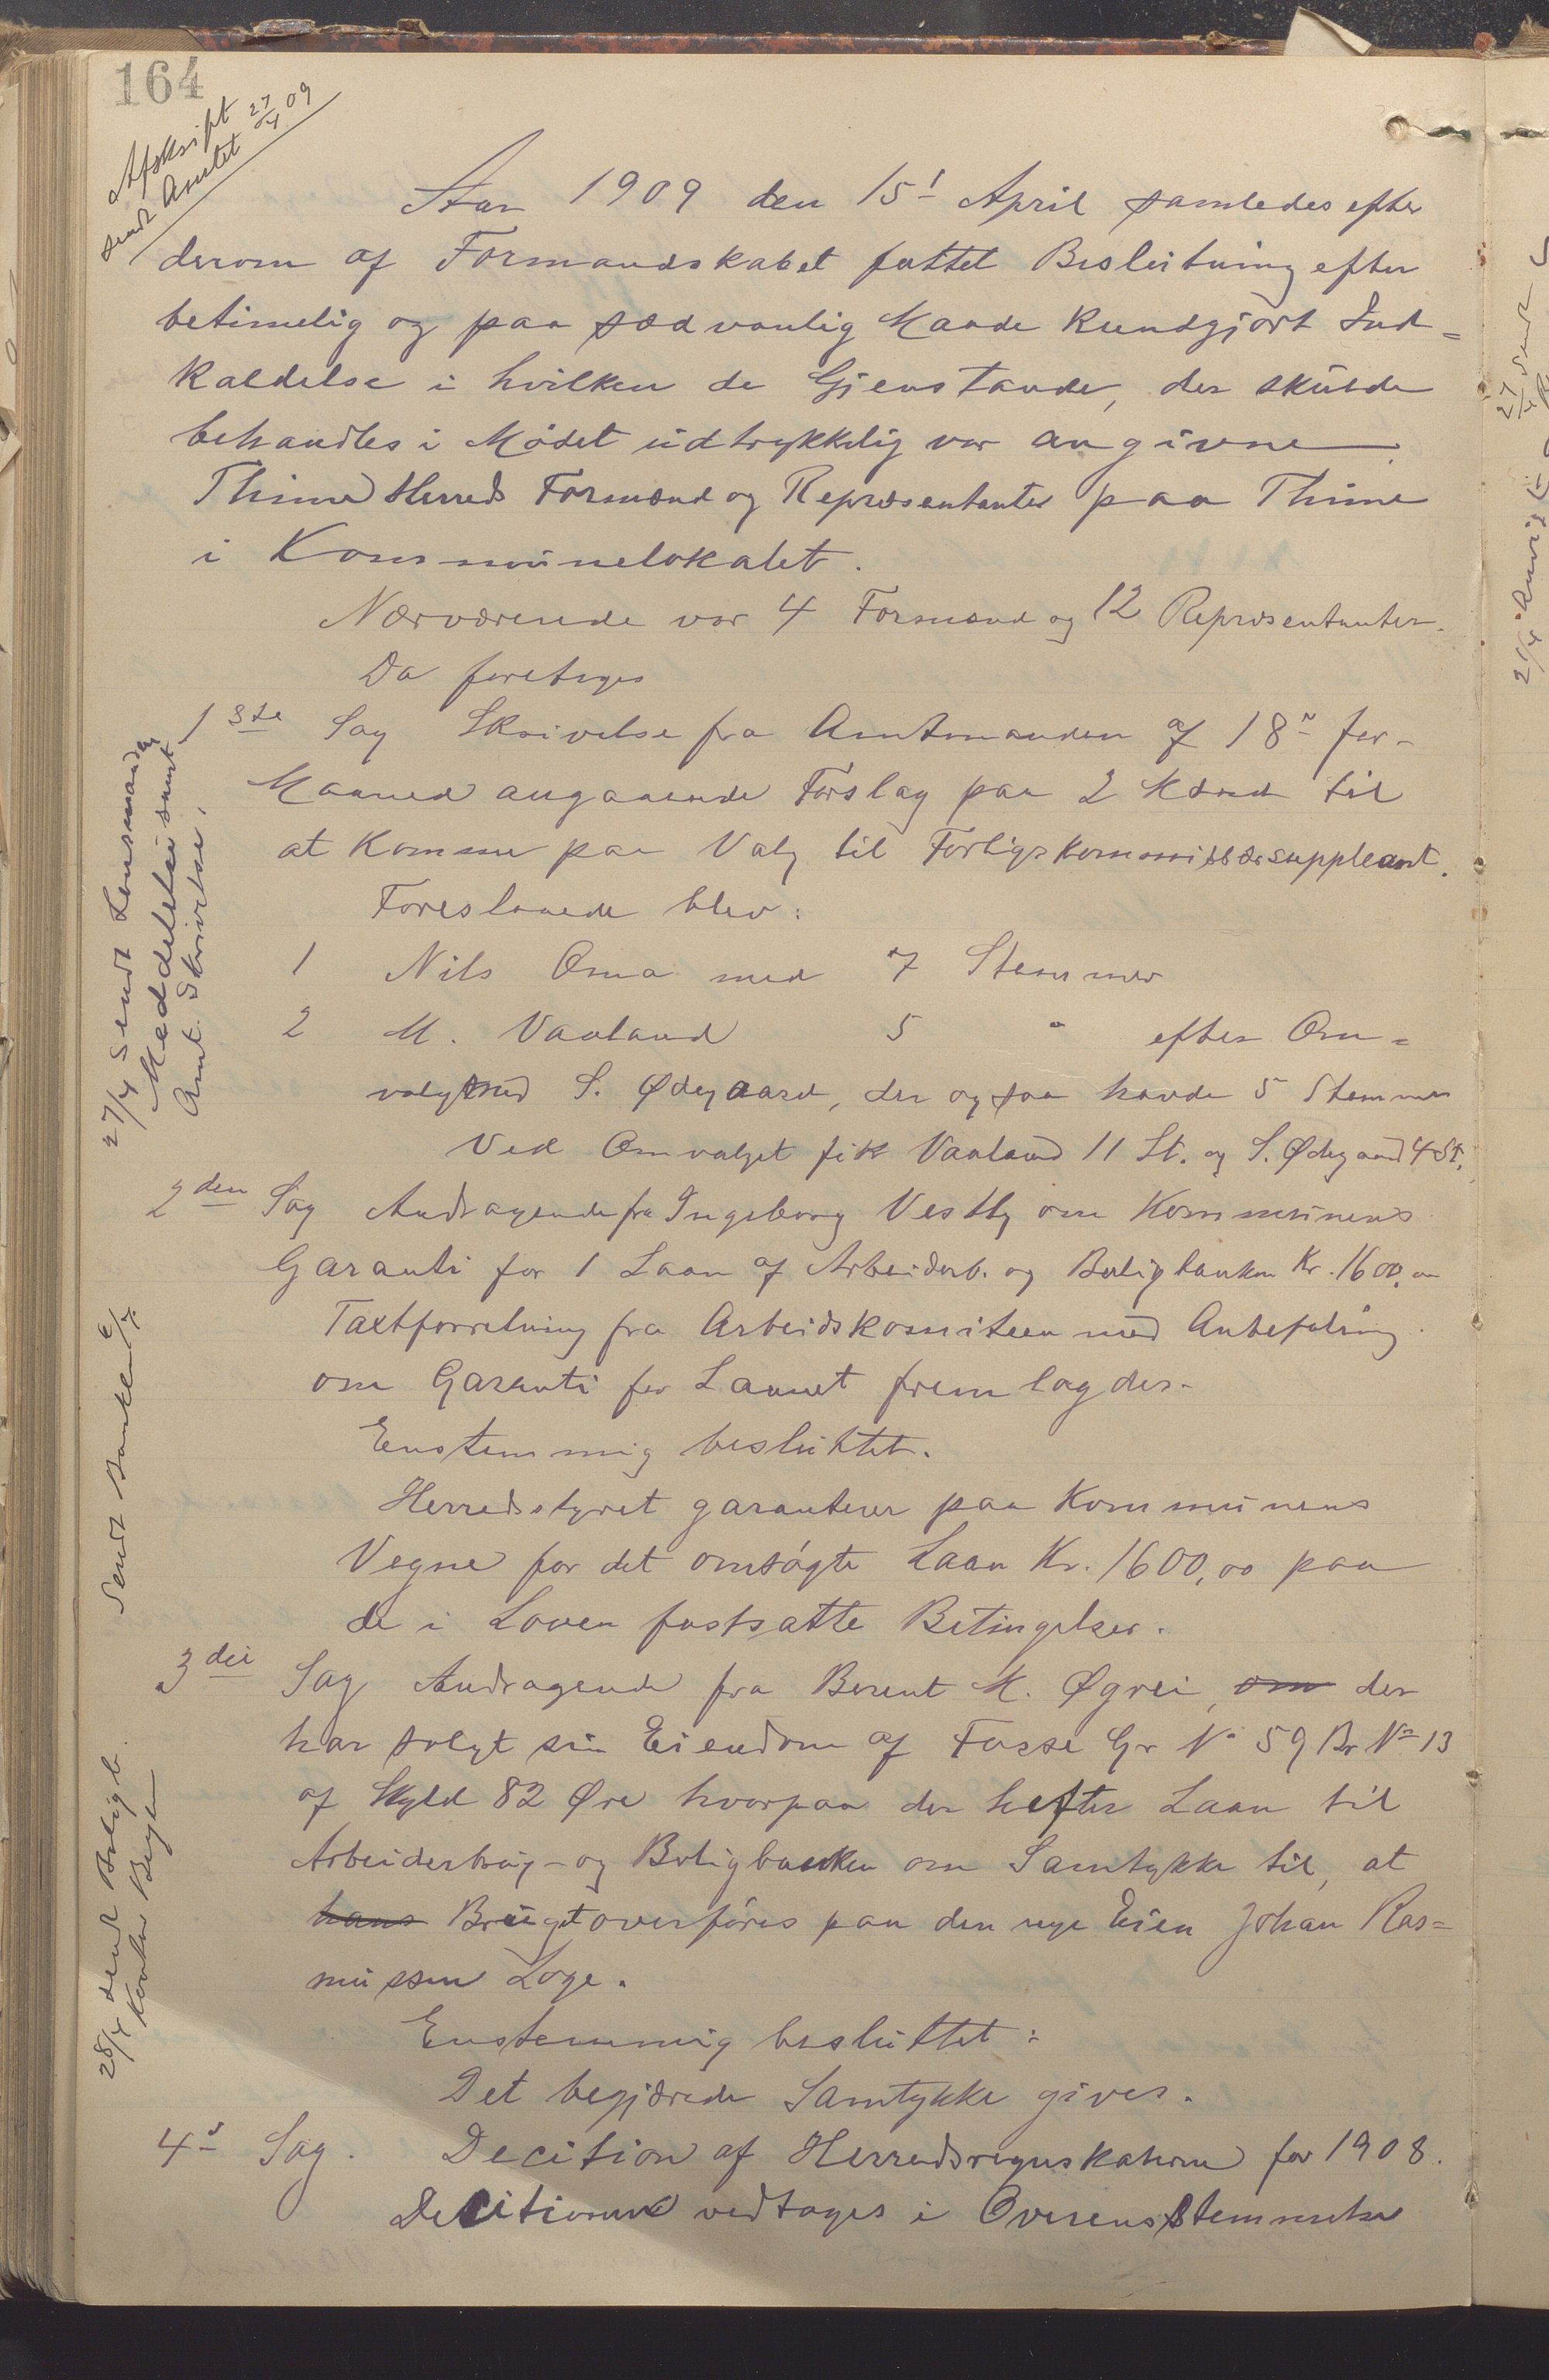 164
Afskrift
sendt Amtet 27/04 09
Aar 1909 den 15' April samledes efter
derom af Formandskabet fattet Beslutning efter
betimelig og paa sædvanlig Maade kundgjort Ind=
kaldelse i hvilken de Gjenstande, der skulde
behandles i Mødet udtrykkelig var angivne
Thime Herreds Formænd og Repræsentanter paa Thime
i Kommunelokalet.
Nærværende var 4 Formænd og 12 Repræsentanter.
Da foretoges
1ste Sag Skrivelse fra Amtmanden af 18' for-
Maaned angaaende Forslag paa 2 Mænd til
at komme paa Valg til Forligskommissærsuppleant.
Foreslaaede blev:
1 Nils Oma med 7 Stemmer
2 M. Vaaland 5 " efter Om=
valg med S. Ødegaard, der ogsaa havde 5 Stemmer
Ved Omvalget fik Vaaland 11 St. og S. Ødegaard 4 St.
27/4 Sendt Lensmanden
Meddelelse samt
Amt. Skrivelse.
2den Sag Andragende fra Ingeborg Vestly om Kommunens
Garanti for 1 Laan af Arbeiderb. og Boligbanken Kr. 1600,00
Taxtforretning fra Arbeidskomiteen med Anbefaling
om Garanti for Laanet fremlagdes.
Enstemmig besluttet.
Herredsstyret garanterer paa Kommunens
Vegne for det omsøgte Laan Kr. 1600,00 paa
de i Loven fastsatte Betingelser.
Sendt Banken
3die Sag Andragende fra Berent M. Øgrei, om der
har solgt sin Eiendom af Fosse Gr No 59 Br No 13
af Skyld 82 Øre hvorpaa der hefter Laan til
Arbeiderbrug- og Boligbanken om Samtykke til, at
hans Bruget overføres paa den nye Eier Johan Ras=
mussen Loge.
Enstemmig besluttet:
Det begjærede Samtykke gives.
28/4 sendt Boligb.
4' Sag. Decition af Herredsregnskaberne for 1908.
Decitionen vedtages i Overensstemmelse